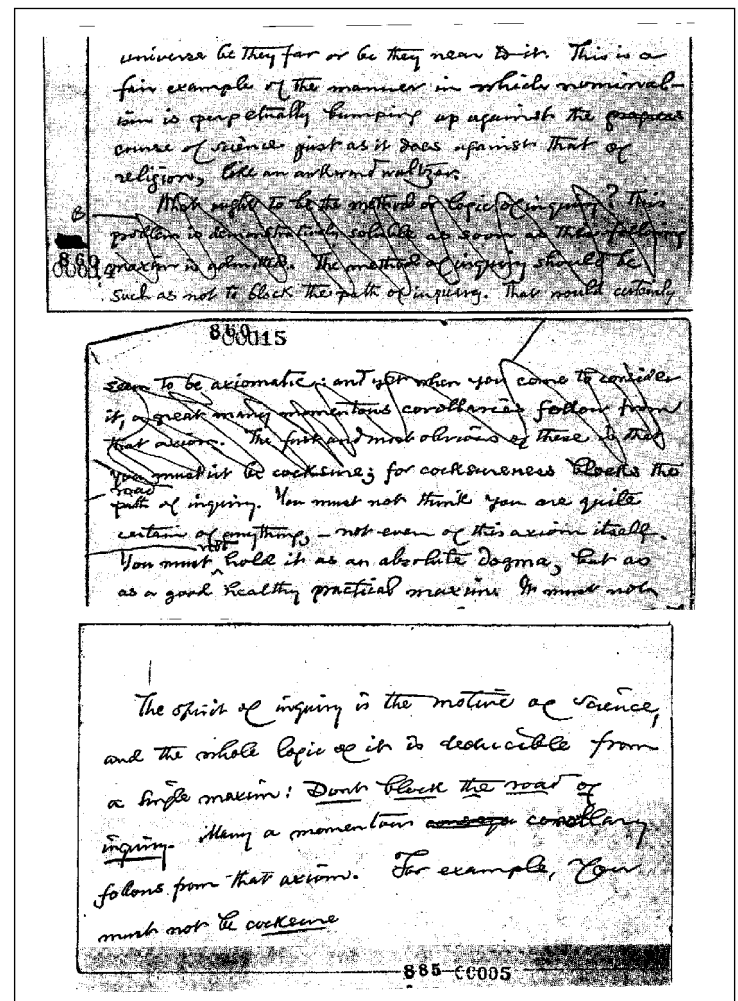 universe be they far or be they near D-it. This is a
fair example of the manner in which nominal-
ism is perpetually bumping up against the progress
course of science just as it does against that of
religion, like an awkward waltzer.
B
What ought to be the method or logic of inquiry? This
problem is demonstratively soluble as soon as the following
maxim is admitted. The method of inquiry should be
such as not to block the path of inquiry. That would certainly
860
00015
seem to be axiomatic; and yet when you come to consider
it, a great many momentous corollaries follow from
that axiom. The first and most obvious of these is that
you must not be cocksure; for cocksureness blocks the
road
path of inquiry. You must not think you are quite
certain of anything, – not even of this axiom itself.
not
You must hold it as an absolute dogma, but as
as a good healthy practical maxim. must not
The spirit of inquiry is the motive of science,
and the whole logic of it is deducible from
a single maxim: Dont block the road of
inquiry. Many a momentous corollary
follows from that axiom. For example, You
must not be cocksure
885 00005